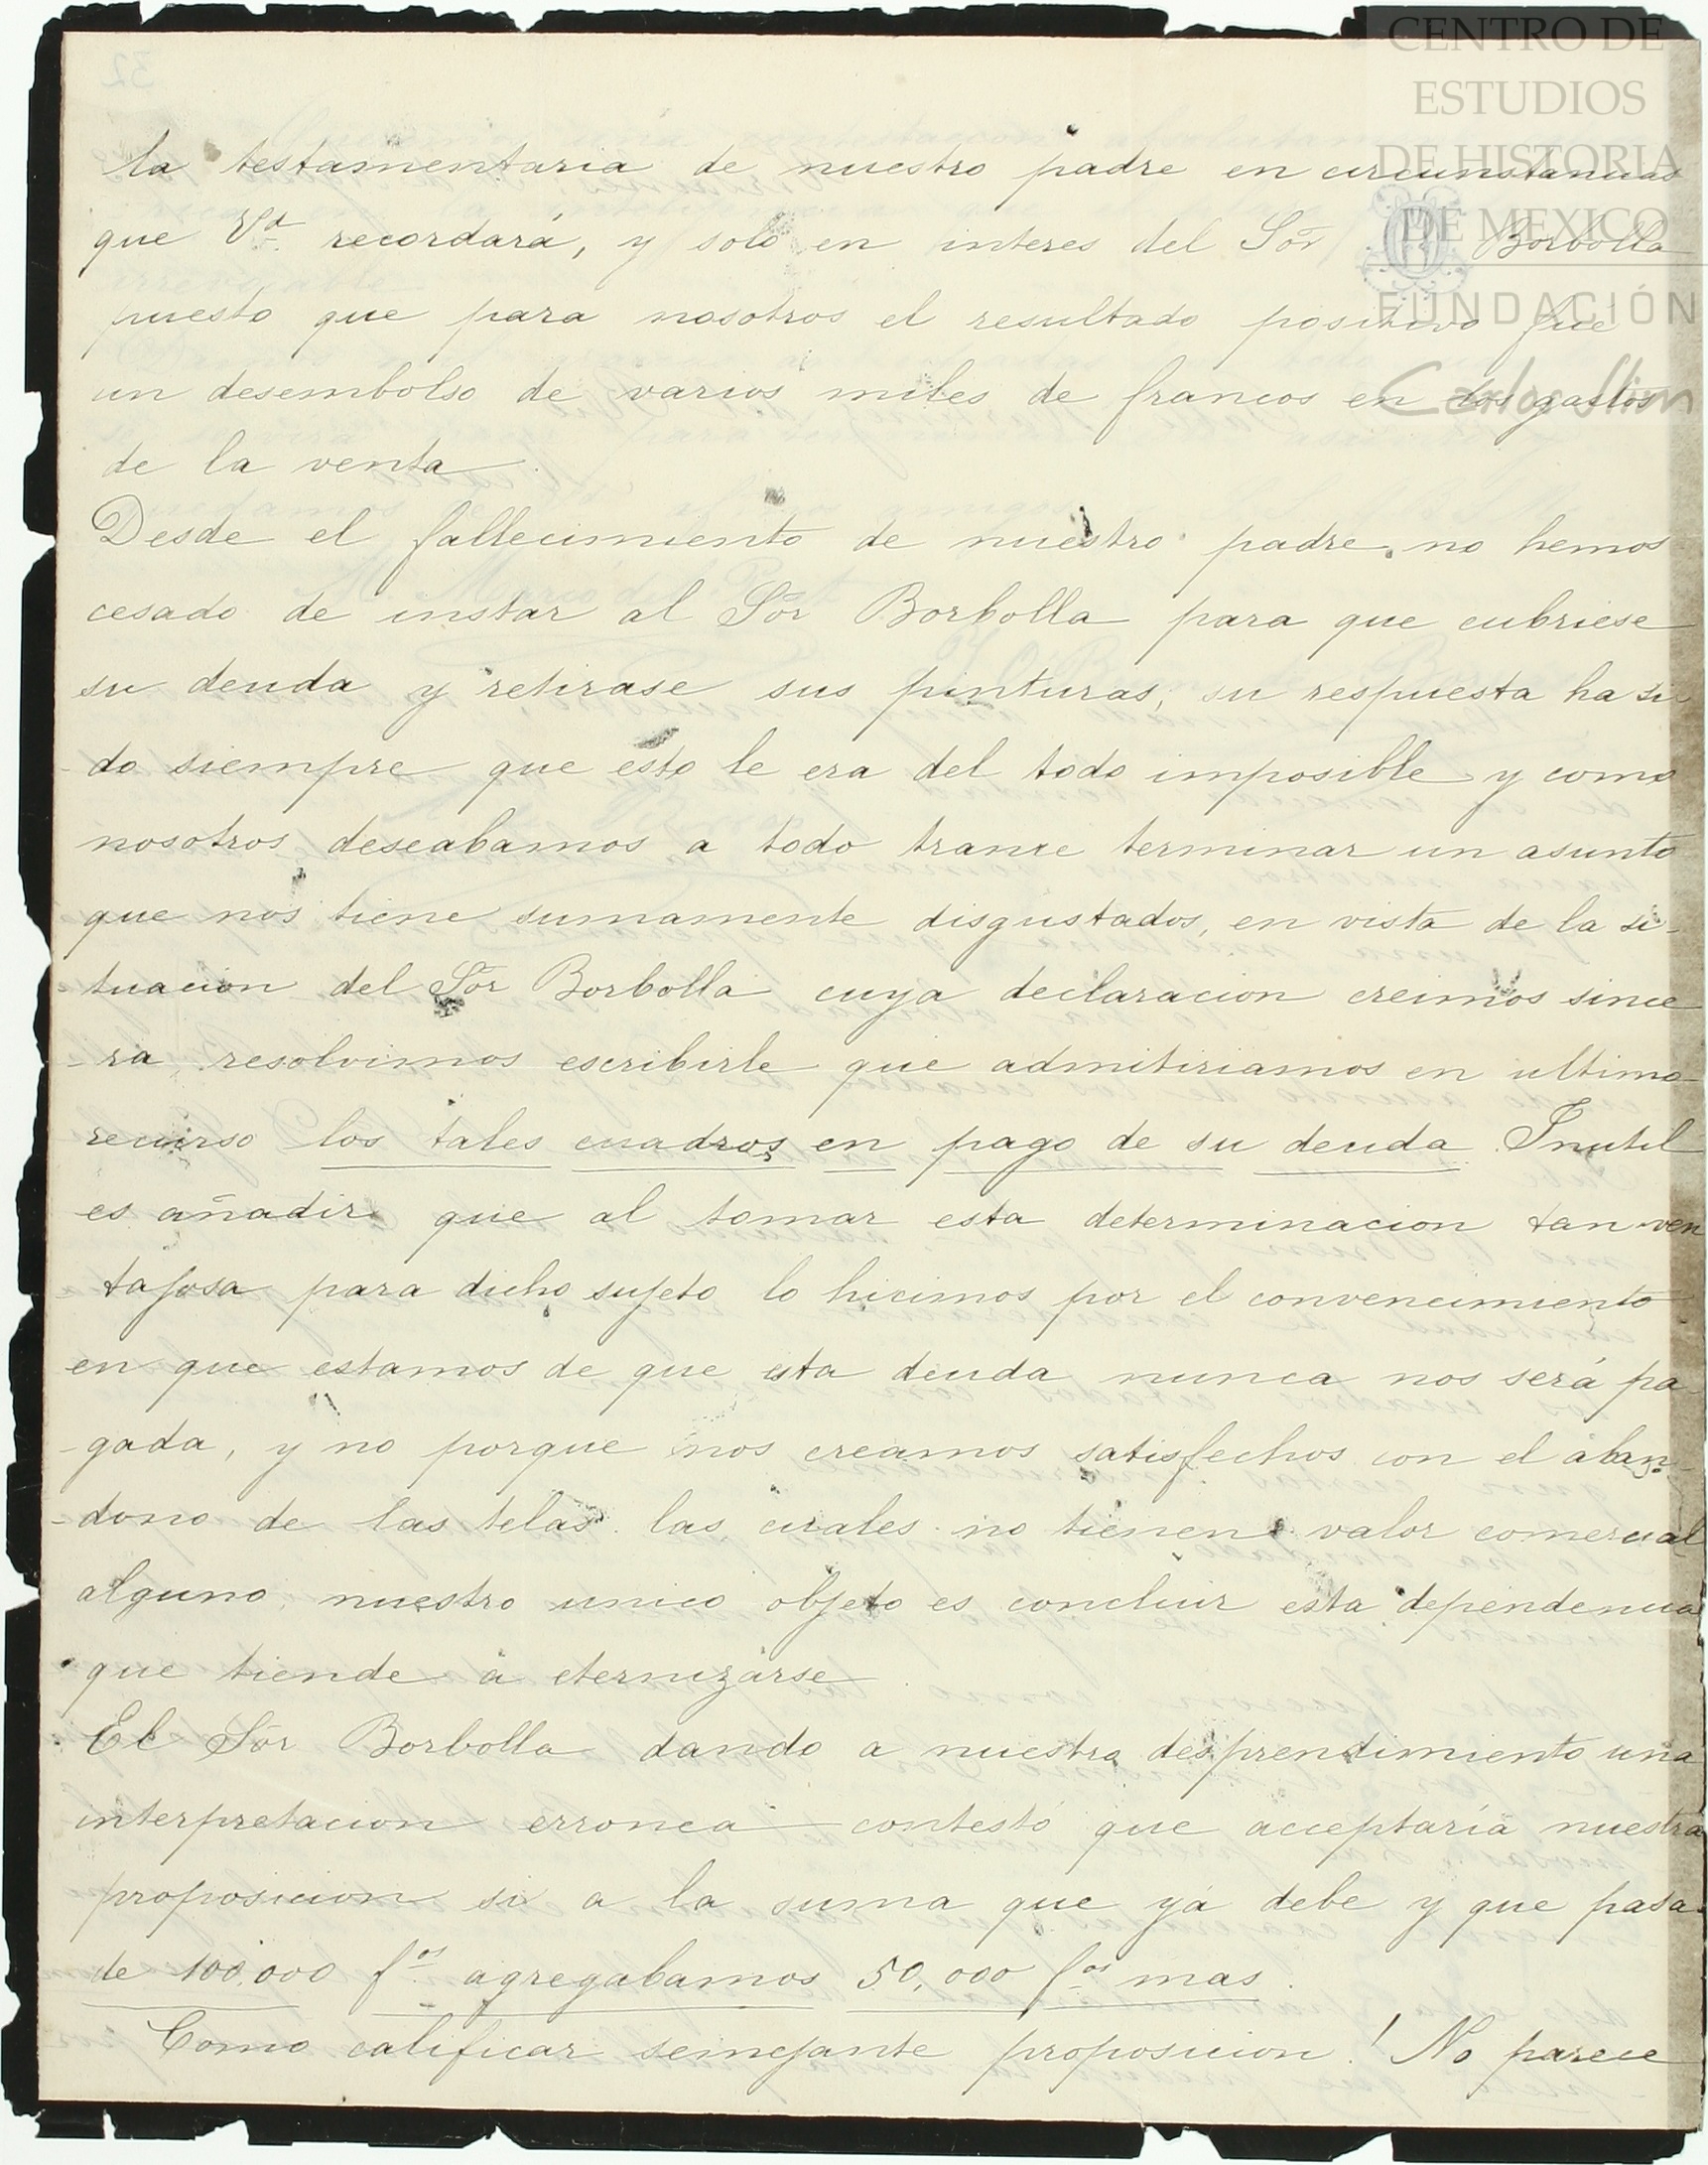 CENTRO DE
ESTUDIOS
DE HISTORIA
DE MEXICO
FUNDACIÓN
Carlos Slim
la testamentaria de nuestro padre en circunstancias
que Vd recordará, y solo en interes del Sõr Borbolla
puesto que para nosotros el resultado positivo fue
un desembolso de varios miles de francos en los gastos
de la venta.
Desde el fallecimiento de nuestro padre, no hemos
cesado de instar al Sõr Borbolla para que cubriese
su deuda y retirase sus pinturas, su respuesta ha si
-do siempre que esto le era del todo imposible y como
nosotros deseabamos a todo trance terminar un asunto
que nos tiene sumamente disgustados, en vista de la si-
-tuacion del Sõr Borbolla cuya declaracion creimos since
-ra resolvimos escribirle que admitiriamos en ultimo
recurso los tales cuadros en pago de su deuda. Inutil
es añadir que al tomar esta determinacion tan ven
tajosa para dicho sujeto lo hicimos por el convencimiento
en que estamos de que esta deuda nunca nos será pa-
-gada, y no porque nos creamos satisfechos con el aban-
-dono de las telas las cuales no tienen valor comercial
alguno, nuestro unico objeto es concluir esta dependencia
que tiende à eternizarse.
El Sõr Borbolla dando a nuestro desprendimiento una
interpretacion erronea contestó que acceptaría nuestra
proposicion si a la suma que yá debe y que pasa
de 100,000 fos agregabamos 50,000 fos mas.
Como calificar semejante proposicion! No parece
32